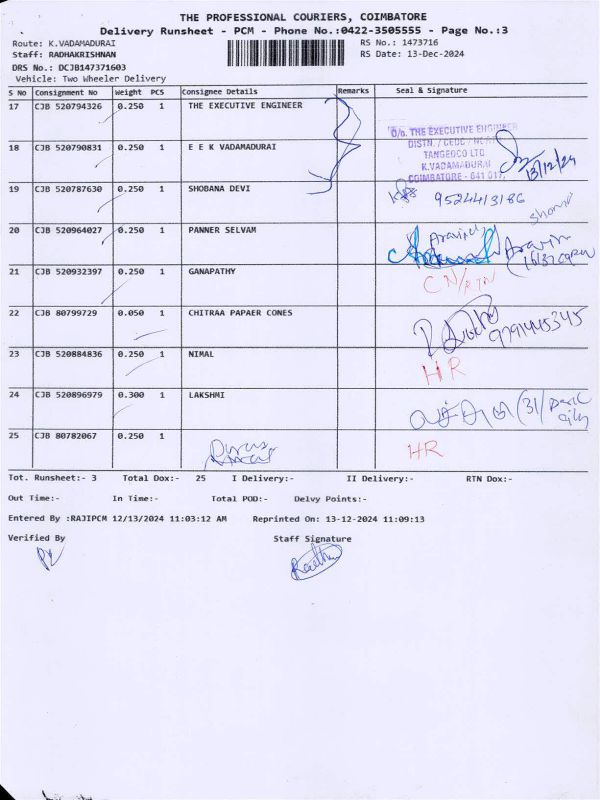 THE PROFESSIONAL COURIERS, COIMBATORE
Delivery Runsheet - PCM - Phone No.:0422-3505555 - Page No.:3
Route: K.VADAMADURAI
RS No.: 1473716
Staff: RADHAKRISHNAN
RS Date: 13-Dec-2024
DRS No.: DCJB147371603
Vehicle: Two Wheeler Delivery
S No Consignment No Weight PCS Consignee Details Remarks Seal & Signature
17 CJB 520794326 0.250 1 THE EXECUTIVE ENGINEER
O/o. THE EXECUTIVE ENGINEER
18 CJB 520790831 0.250 1 E E K VADAMADURAI
TANGEDCO LTD
K.VADAMADURAI
COIMBATORE - 641 017.
13/12/24
19 CJB 520787630 0.250 1 SHOBANA DEVI
9524413186
20 CJB 520964027 0.250 1 PANNER SELVAM
21 CJB 520932397 0.250 1 GANAPATHY
CN/RTN
22 CJB 80799729 0.050 1 CHITRAA PAPAER CONES
9791445345
23 CJB 520884836 0.250 1 NIMAL
HR
24 CJB 520896979 0.300 1 LAKSHMI
25 CJB 80782067 0.250 1
HR
Tot. Runsheet:- 3 Total Dox:- 25 I Delivery:- II Delivery:- RTN Dox:-
Out Time:- In Time:- Total POD:- Delvy Points:-
Entered By :RAJIPCM 12/13/2024 11:03:12 AM Reprinted On: 13-12-2024 11:09:13
Verified By Staff Signature